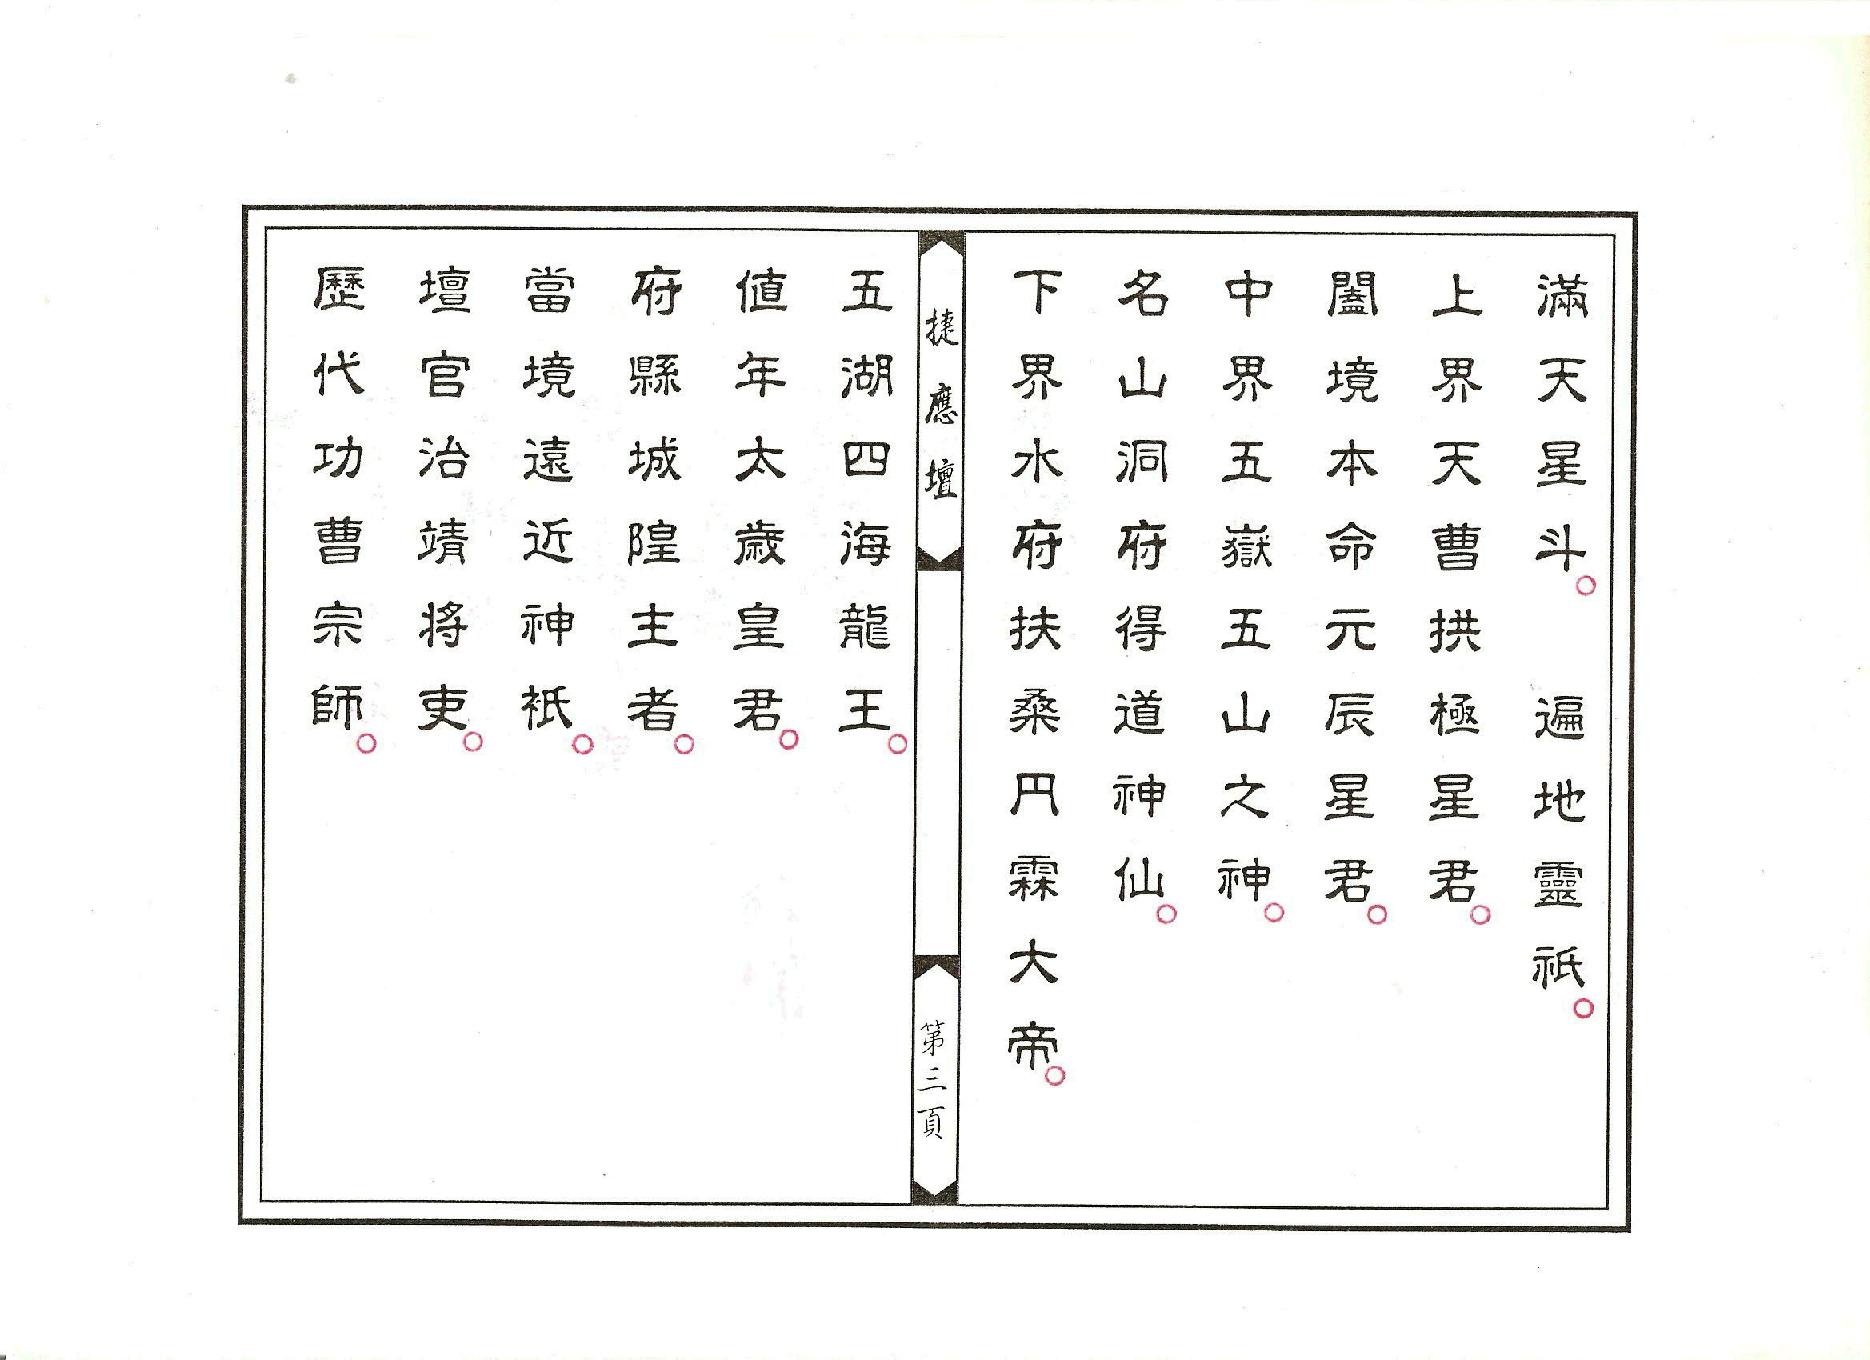 滿天星斗。　遍地靈祇。
上界天曹拱極星君。
闔境本命元辰星君。
中界五嶽五山之神。
名山洞府得道神仙。
下界水府扶桑円霖大帝。
捷應壇
第三頁
五湖四海龍王。
值年太歲皇君。
府縣城隍主者。
當境遠近神祇。
壇官治靖將吏。
歷代功曹宗師。